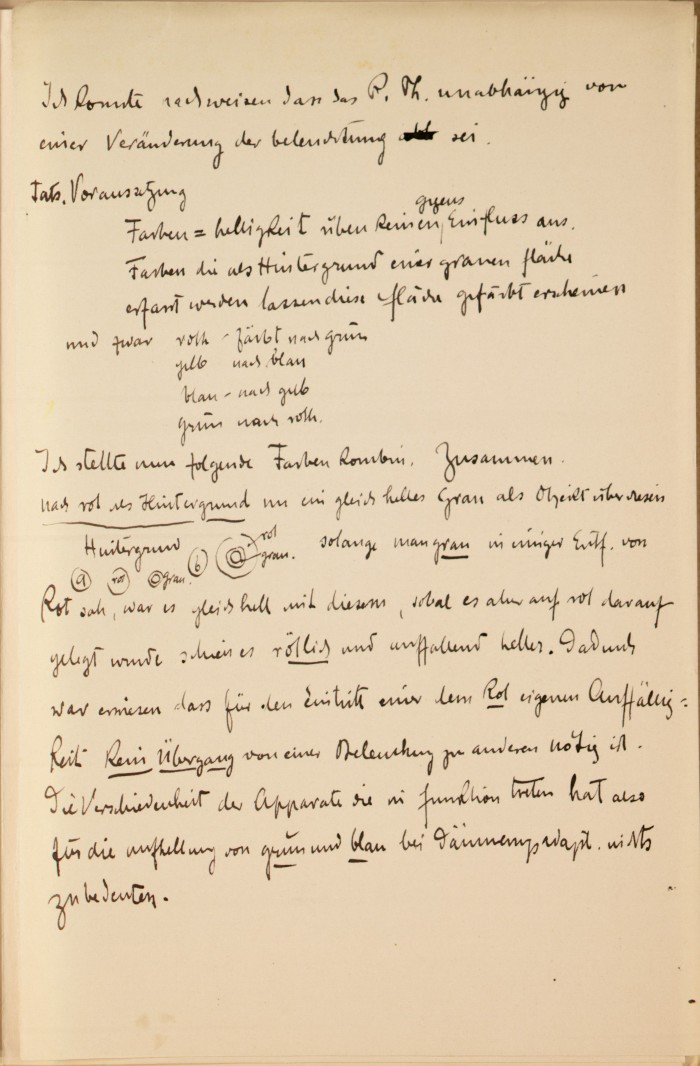 Ich konnte nachweisen dass das P. Th. unabhängig von
einer Veränderung der beleuchtung sei.
Tats. Voraussetzung
Farben = helligkeit üben keinen gegens Einfluss aus.
Farben die als Hintergrund einer grauen fläche
erfasst werden lassen diese fläche gefärbt erscheinen
und zwar roth - färbt nach grün
gelb nach blau
blau - nach gelb
grün nach roth.
Ich stellte nun folgende Farben Kombin. Zusammen.
nach rot als Hintergrund nu ein gleich helles Grau als Objekt über diesem
Hintergrund
a rot grau. b rot grau. solange man grau in einiger Entf. von
Rot sah, war es gleich hell mit diesem, sobal es aber auf rot darauf
gelegt wurde schien es rötlich und auffallend heller. Dadurch
war erwiesen dass für den Eintritt einer dem Rot eigenen Auffällig=
keit kein Übergang von einer Beleuchtung zu anderen nötig ist.
Die Verschiedenheit der Apparate die in funktion treten hat also
für die aufhellung von grün und blau bei Dämmerungsadapt. nichts
zu bedeuten.